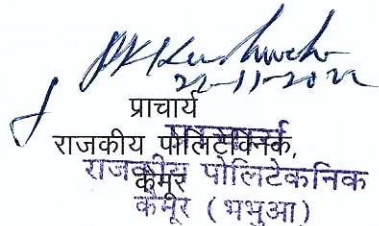 22-11-2022
प्राचार्य
राजकीय पोलिटेक्निक,
कैमूर
प्राचार्य
राजकीय पोलिटेकनिक
कैमूर (भभुआ)